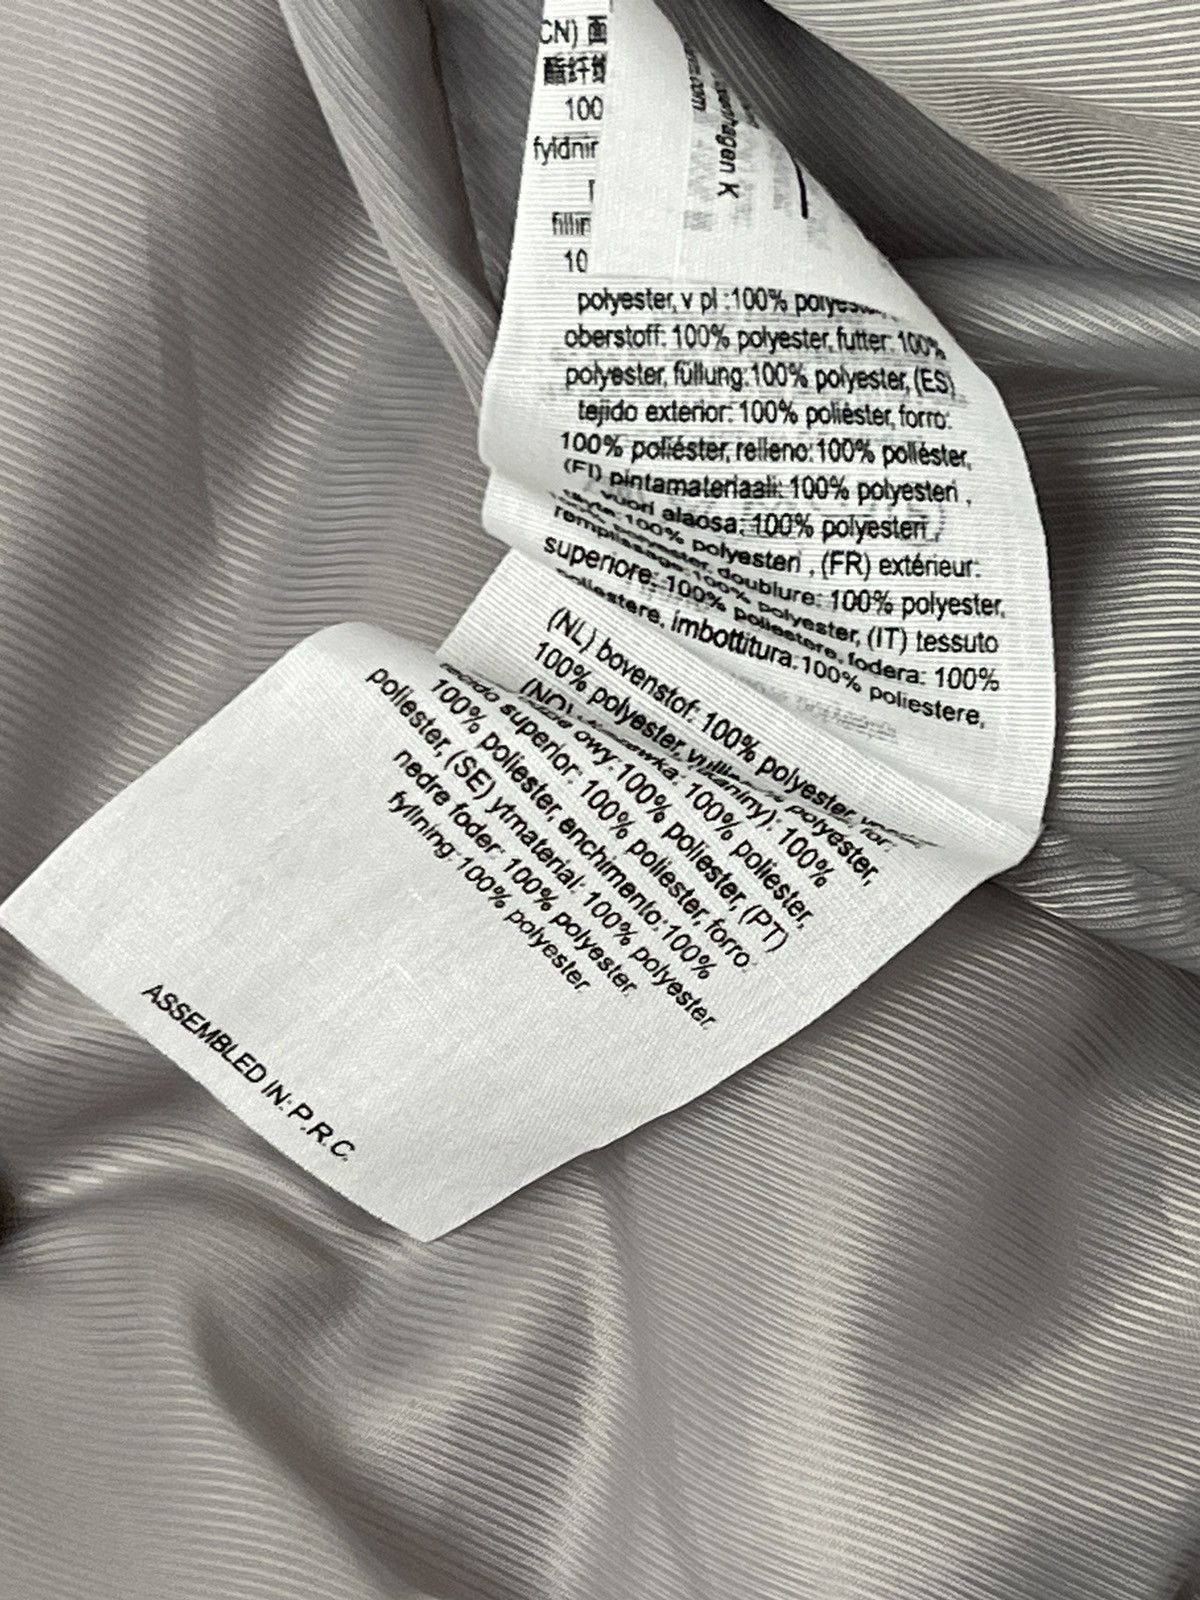 CN) 面
酯纤维
100
fyldnin
fillin
10
polyester, v pl :100% polyester
oberstoff: 100% polyester, futter: 100%
polyester, füllung:100% polyester, (ES)
tejido exterior: 100% poliéster, forro:
100% poliéster, relleno:100% poliéster,
(FI) pintamateriaali: 100% polyesteri ,
vuori alaosa: 100% polyesteri ,
täyte:100% polyesteri , (FR) extérieur:
doublure: 100% polyester,
remplissage:100% polyester, (IT) tessuto
superiore: 100% poliestere, fodera: 100%
poliestere, imbottitura:100% poliestere,
(NL) bovenstof: 100% polyester,
100% polyester, polyester,
(NO) tkaniny): 100%
owy:100% 100% poliester,
poliester, (PT)
tecido superior: 100% poliester, forro:
100% poliester, enchimento:100%
poliester, (SE) ytmaterial: 100% polyester,
nedre foder: 100% polyester,
fyllning:100% polyester.
ASSEMBLED IN: P.R.C.
nhagen K
com